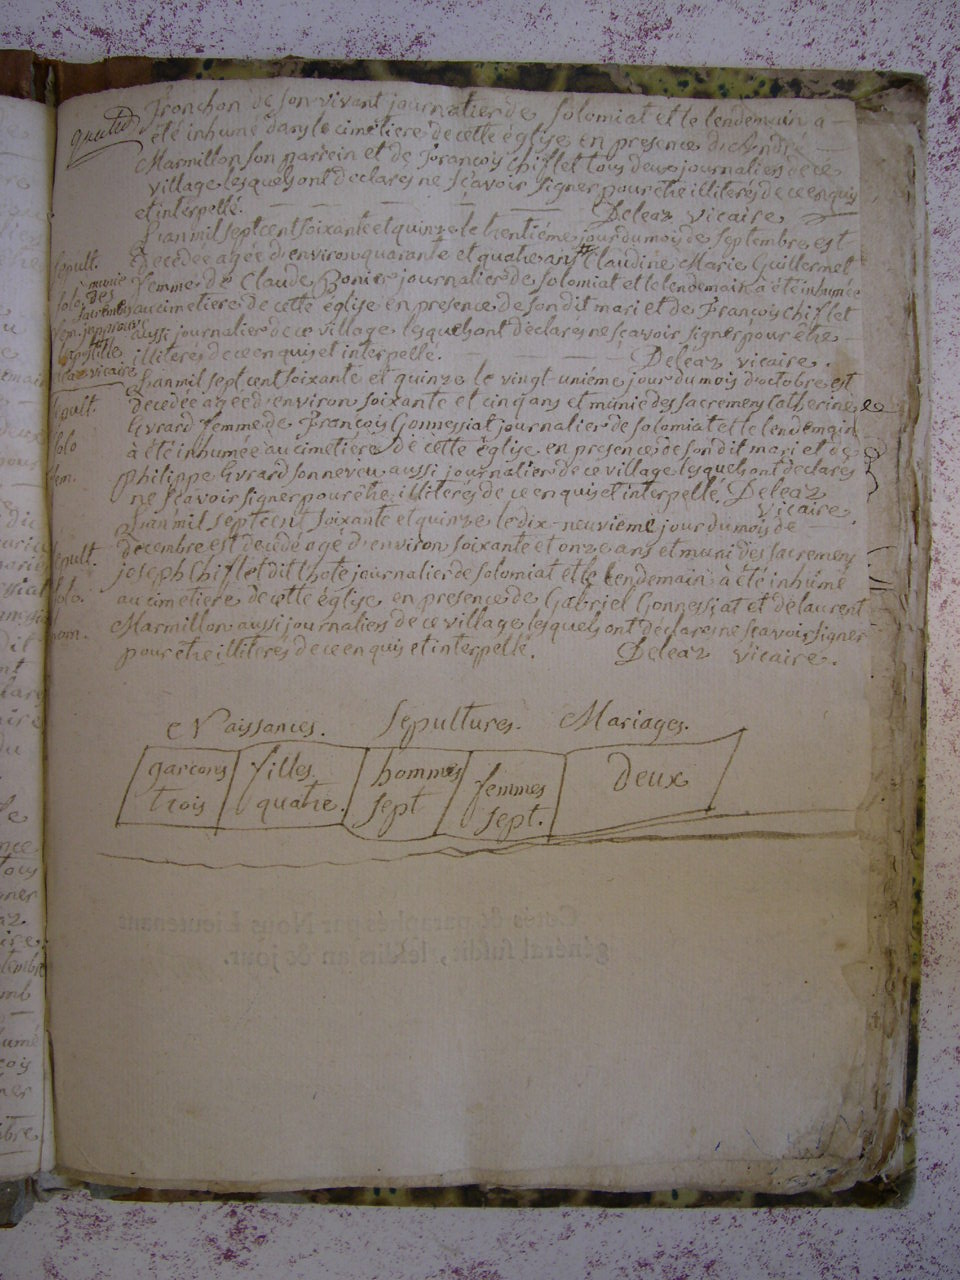 Tronchon de son vivant journalier de solomiat et le lendemain a
été inhumé dans le cimetiere de cette église en presence d'andré
Marmillon son parrein et de François Chiflet tous deux journaliers de ce
village lesquels ont declarés ne sçavoir signer pour être illiterés de ce enquis
et interpellé. Deleaz vicaire
L'an mil sept cent soixante et quinze le trentiéme jour du mois de septembre est
Decedée agée d'environ quarante et quatre ans Claudine Marie Guillermet
femme de Claude Bonier journalier de solomiat et le lendemain a été inhumée
au cimetiere de cette église en presence de son dit mari et de François Chiflet
aussi journalier de ce village lesquels ont declarés ne sçavoir signer pour être
illiterés de ce enquis et interpellé. Deleaz vicaire.
sepult.
solo. munie
des
sacremens
fem. japprouve
lapostille
Deleaz vicaire
L'an mil sept cent soixante et quinze le vingt-uniéme jour du mois d'octobre est
decedée agée d'environ soixante et cinq ans et munie des sacremens Catherine
Evrard femme de François Gonnessiat journalier de solomiat et le lendemain
à été inhumée au cimetiere de cette église en presence de son dit mari et de
philippe Evrard son neveu aussi journalier de ce village lesquels ont declarés
ne sçavoir signer pour être illiterés de ce enquis et interpellé. Deleaz
vicaire.
sepult.
solo
fem.
L'an mil sept cent soixante et quinze le dix-neuvieme jour du mois de
decembre est decédé agé d'environ soixante et onze ans et muni des sacremens
joseph Chiflet dit lhote journalier de solomiat et le lendemain à été inhumé
au cimetiere de cette église en presence de Gabriel Gonnessiat et de laurent
Marmillon aussi journaliers de ce village lesquels ont declarés ne sçavoir signer
pour être illiterés de ce enquis et interpellé. Deleaz vicaire.
sepult.
solo.
hom.
Naissances. Sepultures. Mariages.
garcons filles hommes femmes Deux
trois quatre. sept sept.
Cotés & paraphés par Nous Lieutenant
général susdit, lesdits an & jour.